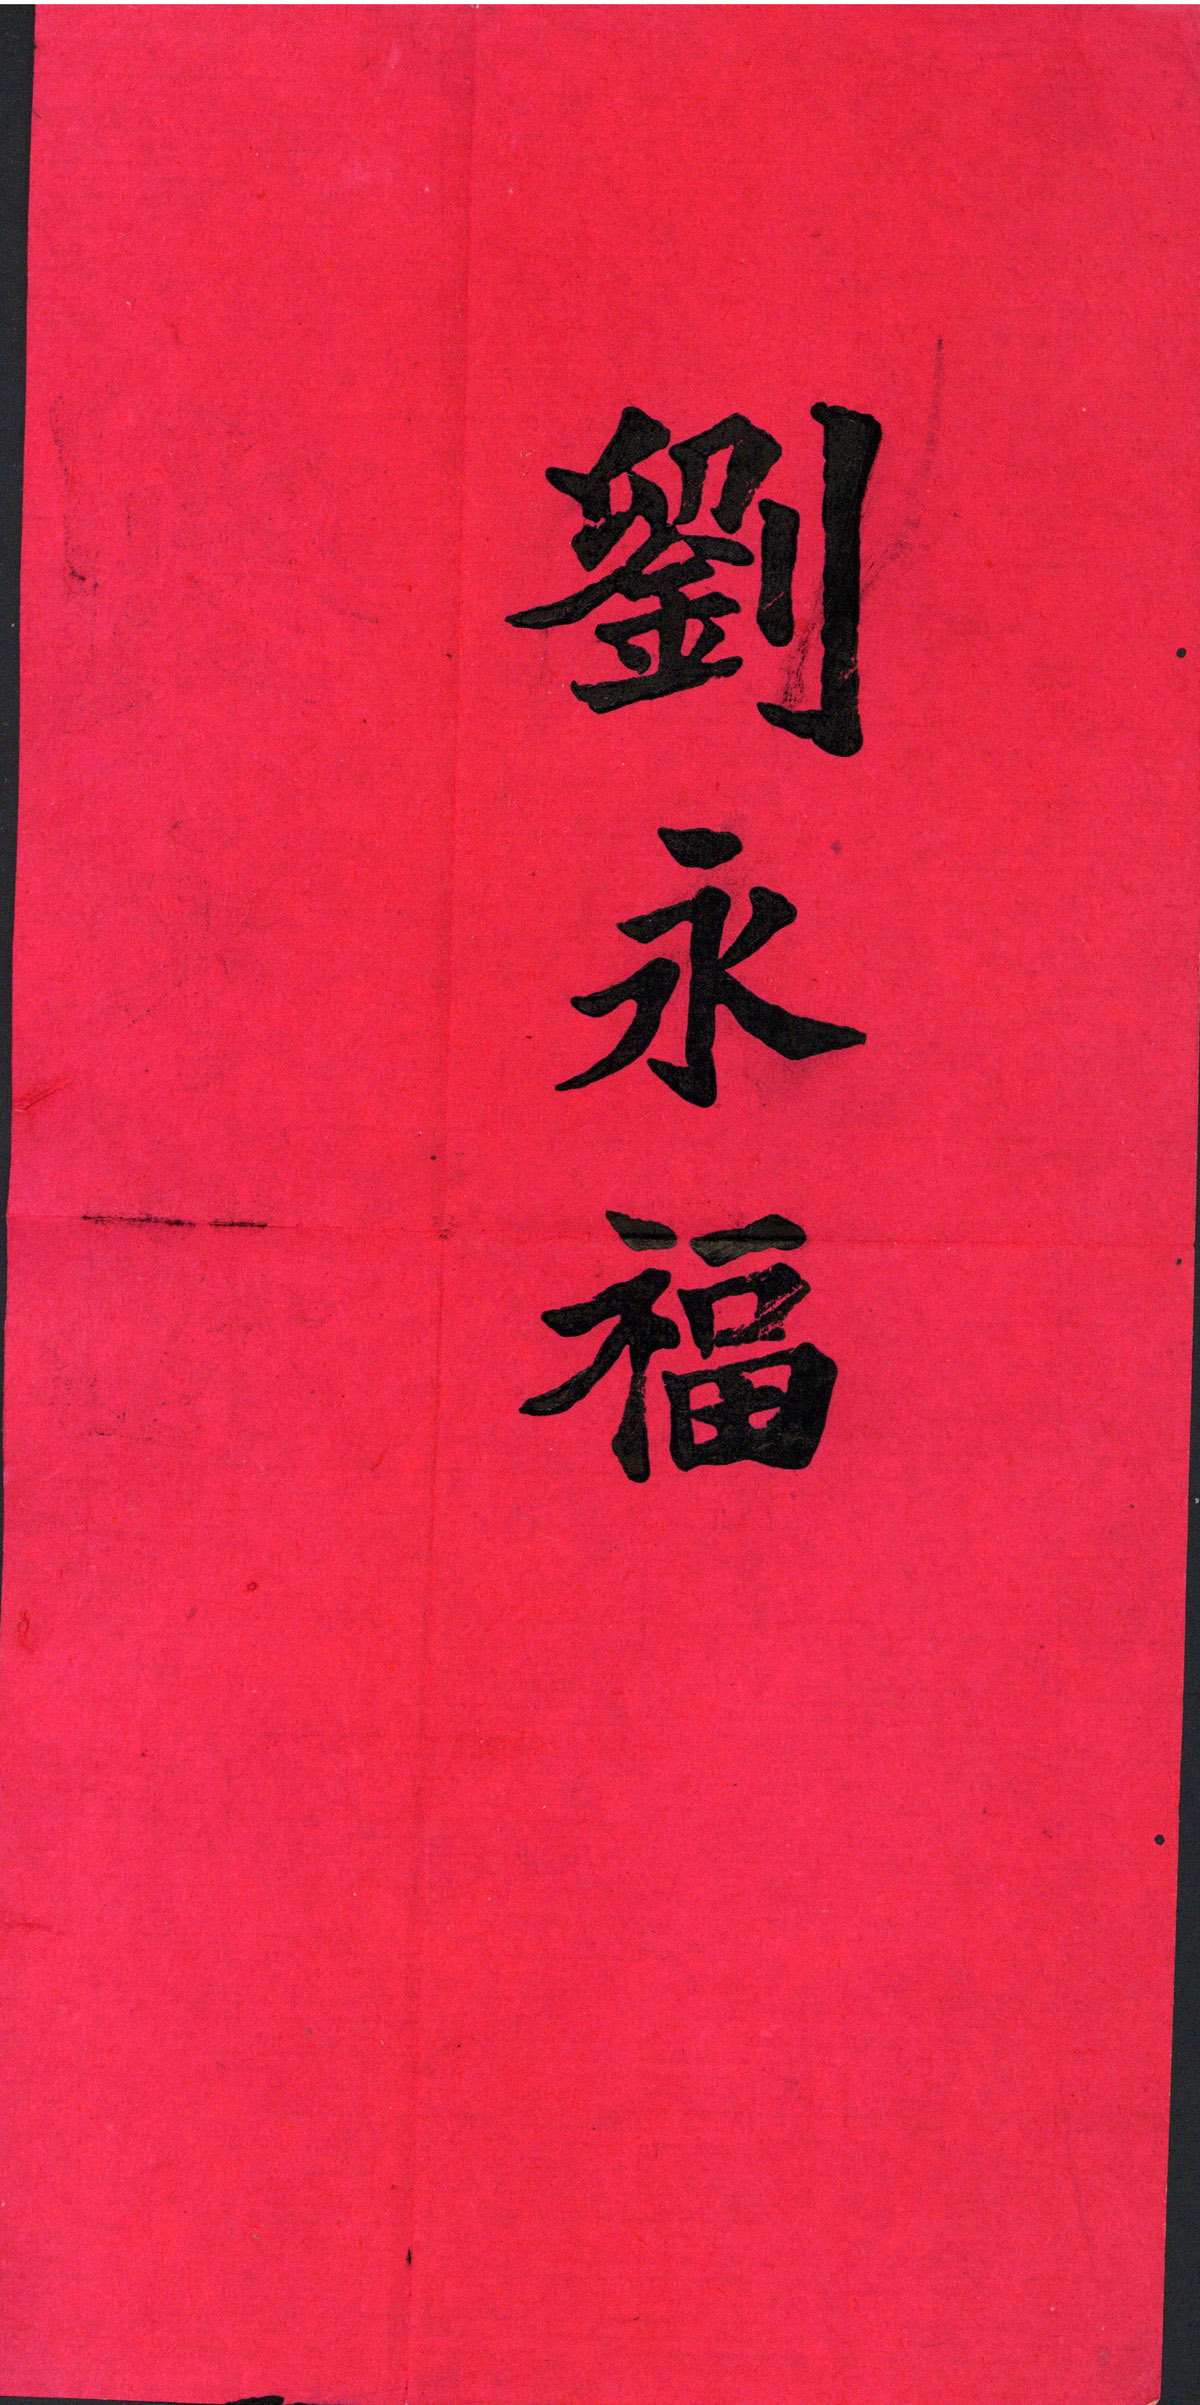 劉永福